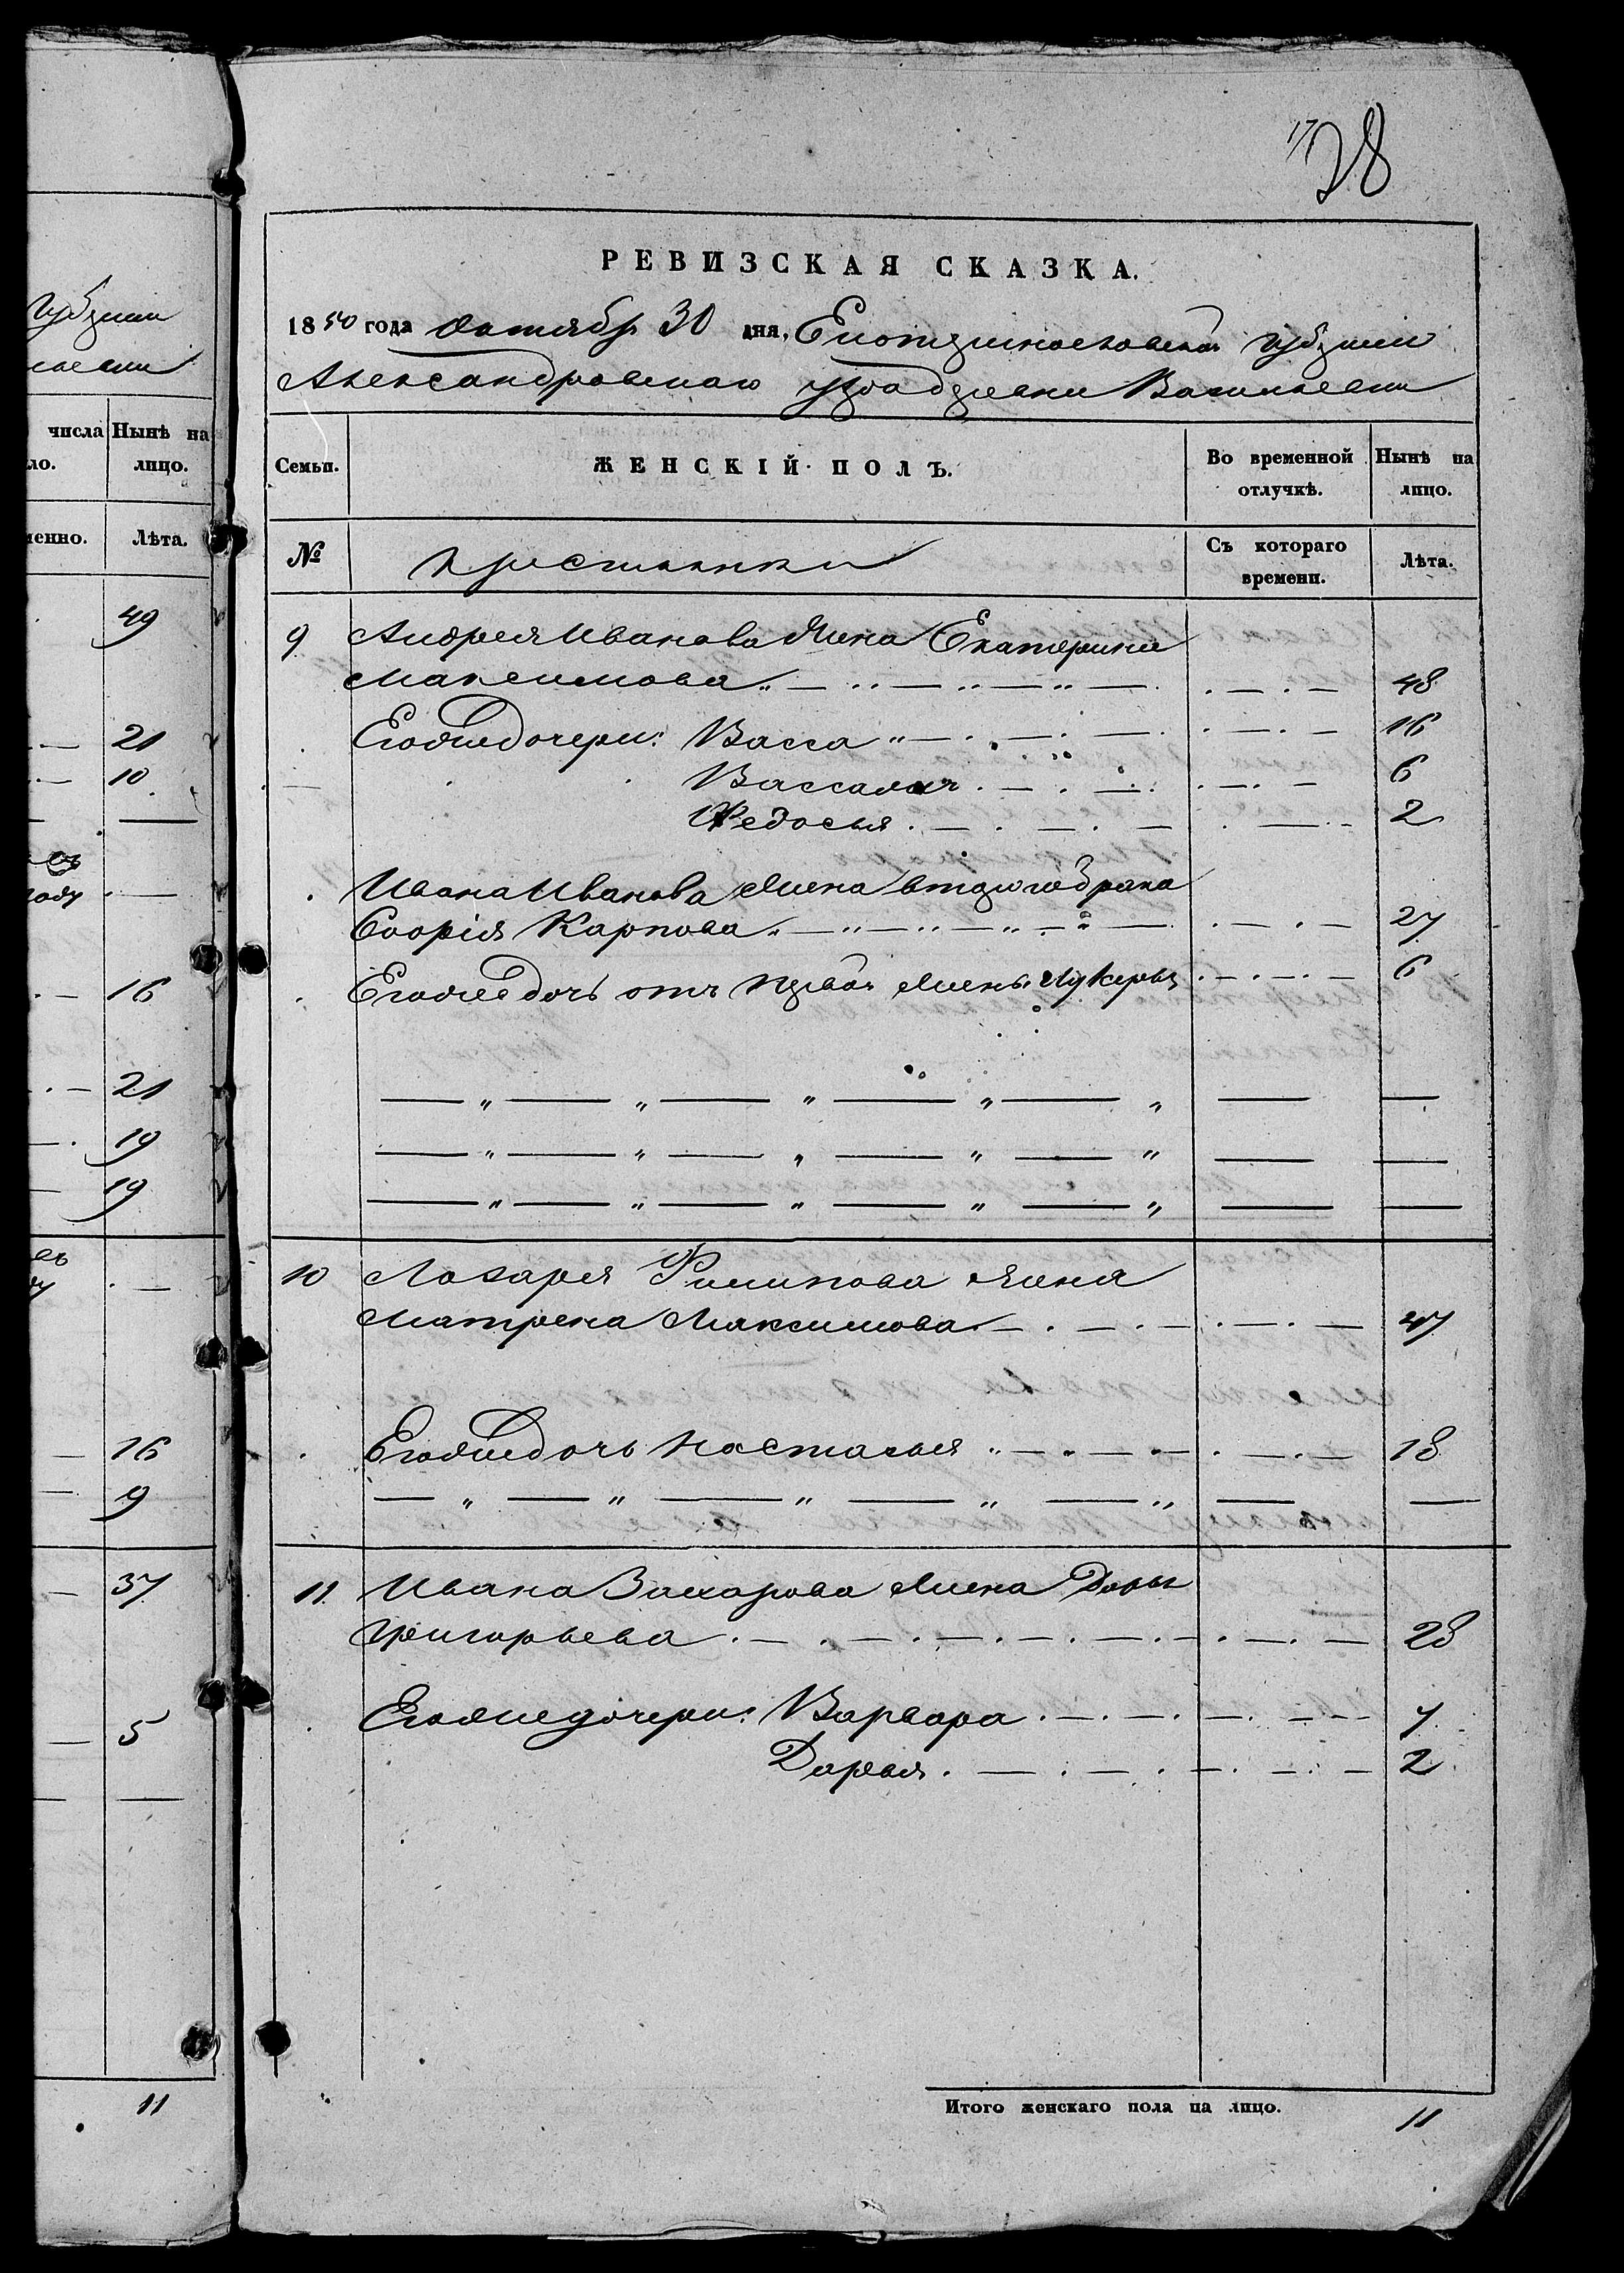 губерніи
числа Нынѣ на
ло. лицо.
менно. Лѣта.
49
21
10
году
16
21
19
19
16
9
37
5
11
17
28
РЕВИЗСКАЯ СКАЗКА.
1850 года Октября 30 дня, Екатеринославской губерніи
Александровскаго уѣзда деревни Васильевки
Семьи. ЖЕНСКІЙ ПОЛЪ. Во временной отлучкѣ. Нынѣ на лицо.
№ Крестьянки Съ котораго времени. Лѣта.
9 Андрея Иванова жена Екатерина
Максимова 48
Его же дочери: Васса 16
Вассалия 6
Федосья 2
Ивана Иванова жена втораго брака
Софія Карпова 27
Его же дочь отъ первой жены Лукерья 6
10 Лазаря Филипова жена
Матрена Максимова 47
Его же дочь Настасья 18
11 Ивана Захарова жена Дарья
Григорьева 28
Его же дочери: Варвара 7
Дарья 2
Итого женскаго пола на лицо. 11